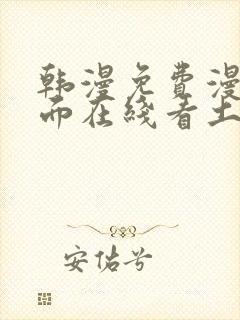 韩漫免费漫
而在线看土
安佑兮